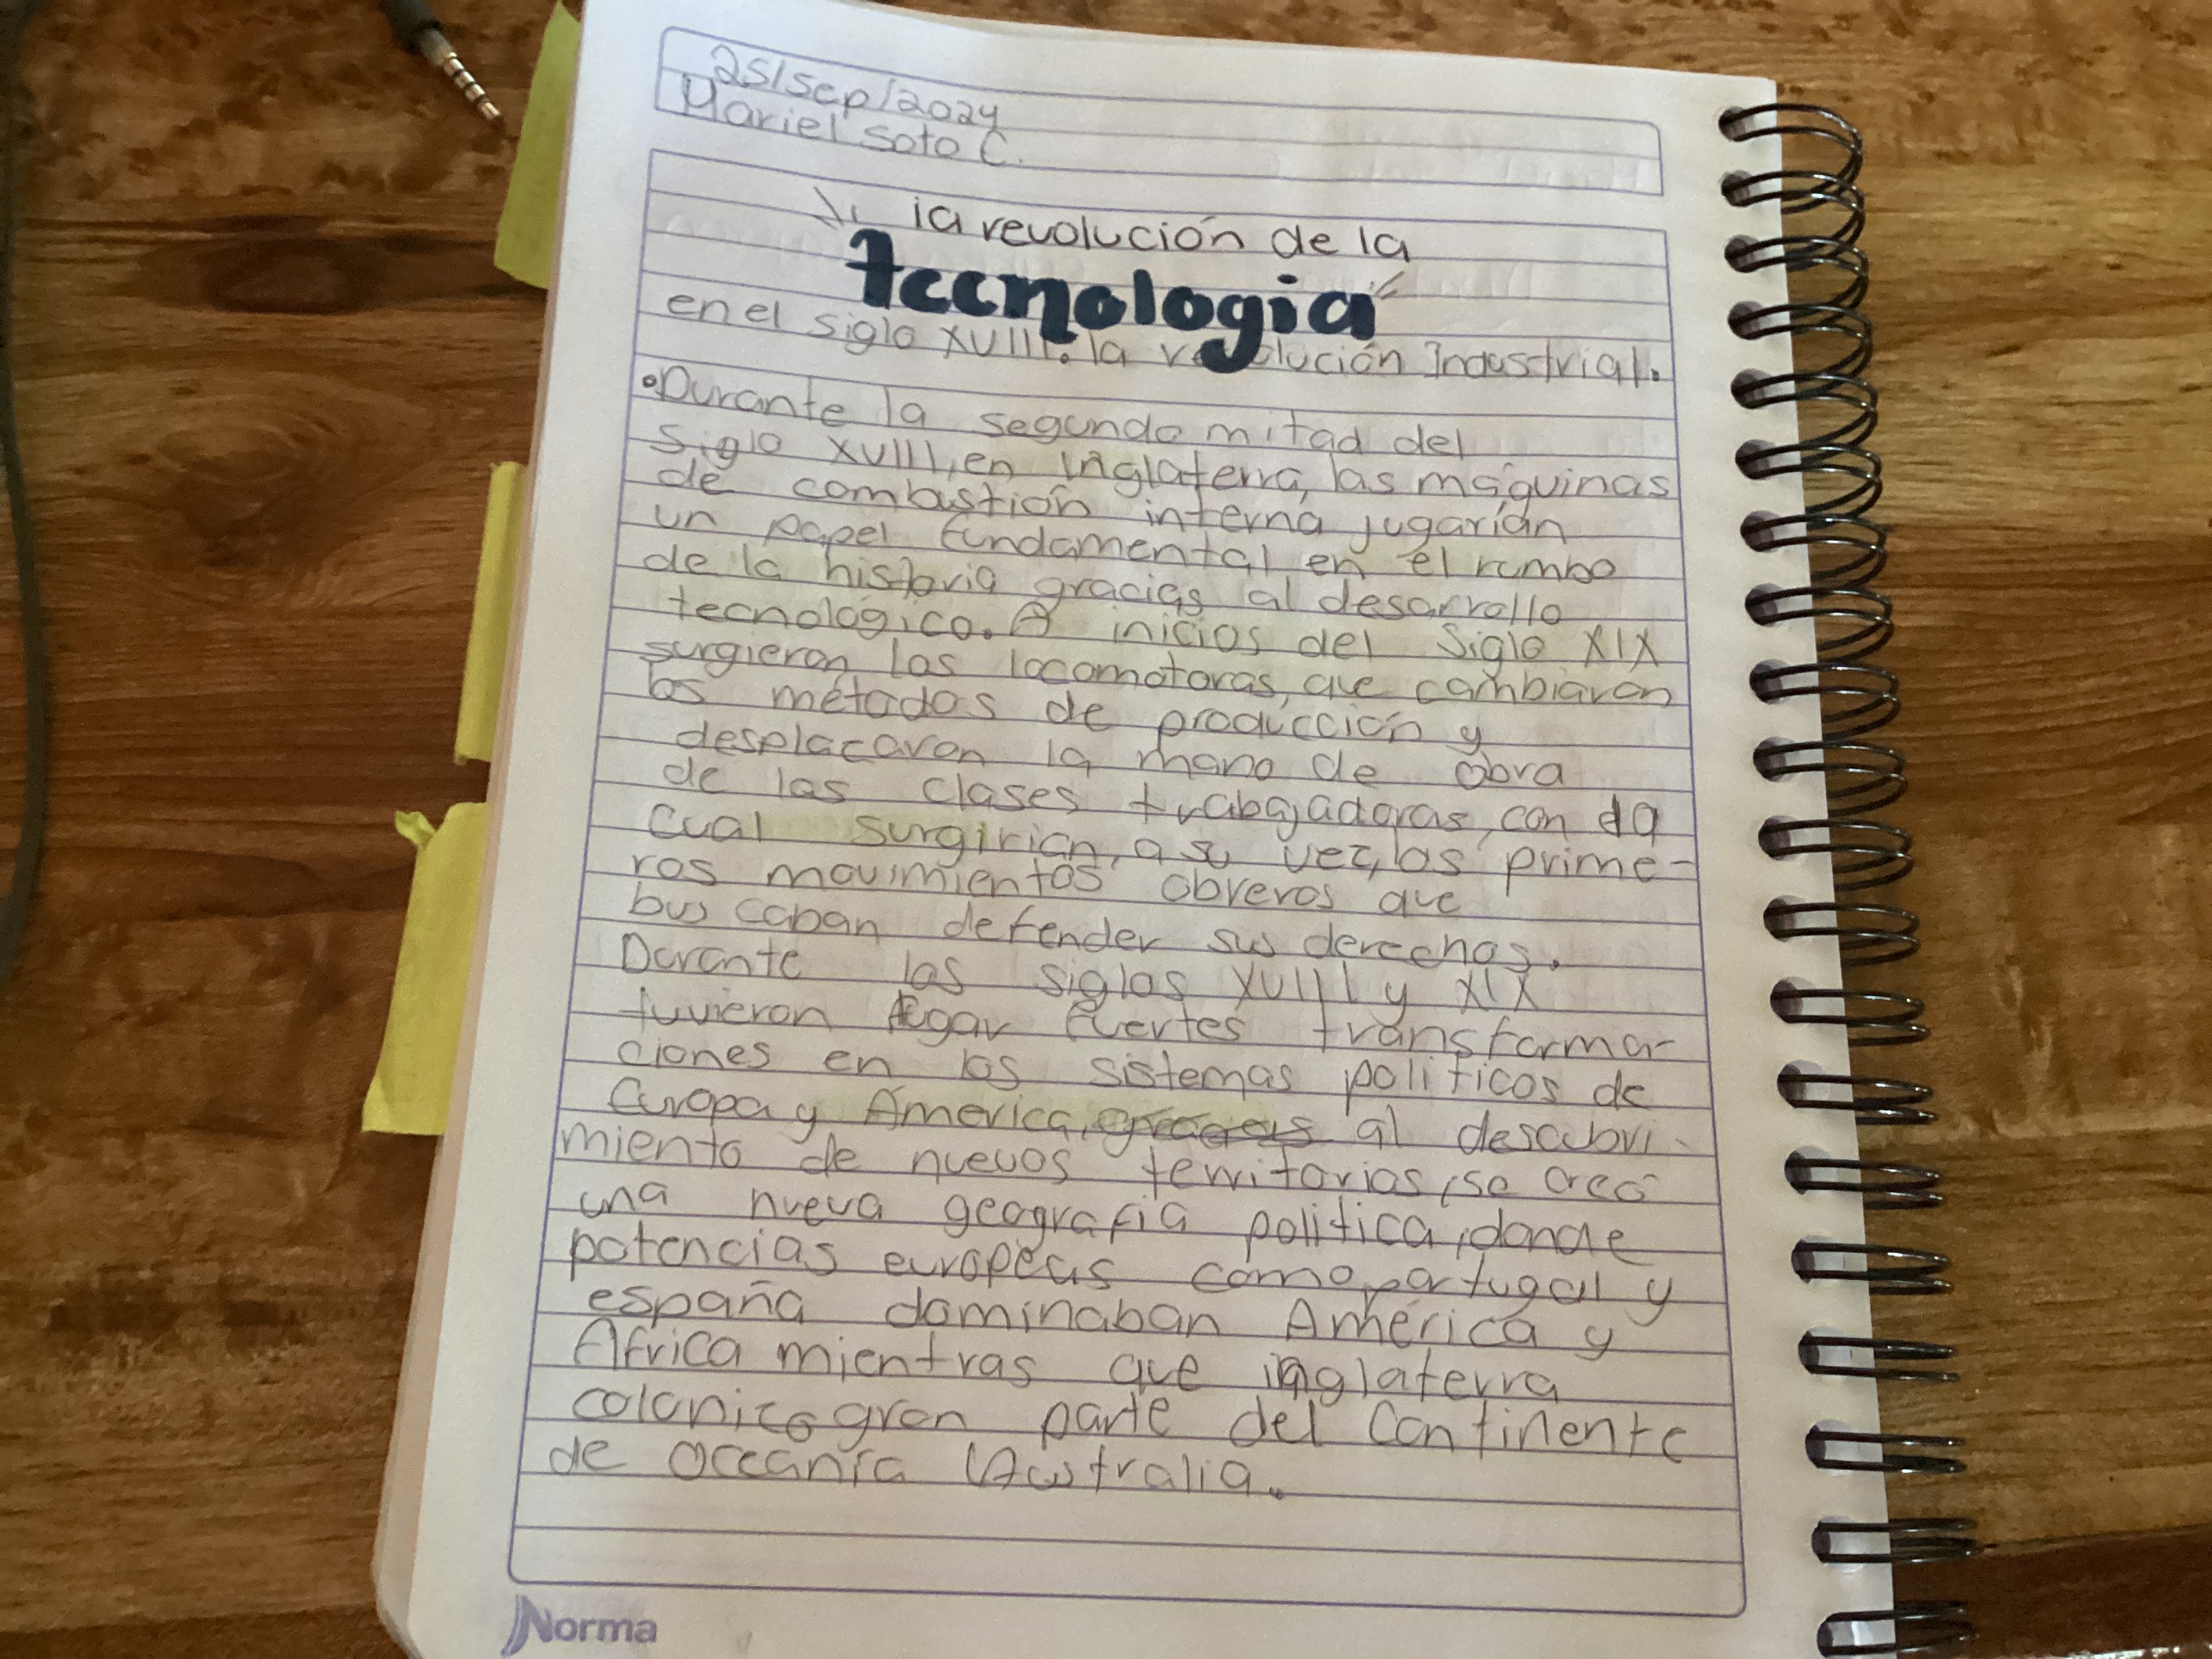 25/sep/2024
Mariel Soto C.
la revolución de la
tecnologia
en el siglo XVIII. la revolución Industrial.
•Durante la segunda mitad del
siglo XVIII, en Inglaterra, las máquinas
de combustión interna jugarían
un papel fundamental en el rumbo
de la historia gracias al desarrollo
tecnológico. A inicios del siglo XIX
surgieron las locomotoras, que cambiaron
los métodos de producción y
desplazaron la mano de obra
de las clases trabajadoras, con la
cual surgirían, a su vez, los prime-
ros movimientos obreros que
buscaban defender sus derechos.
Durante los siglos XVIII y XIX
tuvieron lugar fuertes transforma-
ciones en los sistemas politicos de
Europa y América, gracias al descubri-
miento de nuevos territorios, se creó
una nueva geografia politica, donde
potencias europeas como portugal y
españa dominaban América y
Africa mientras que inglaterra
colonizo gran parte del Continente
de Oceanía (Australia.
Norma